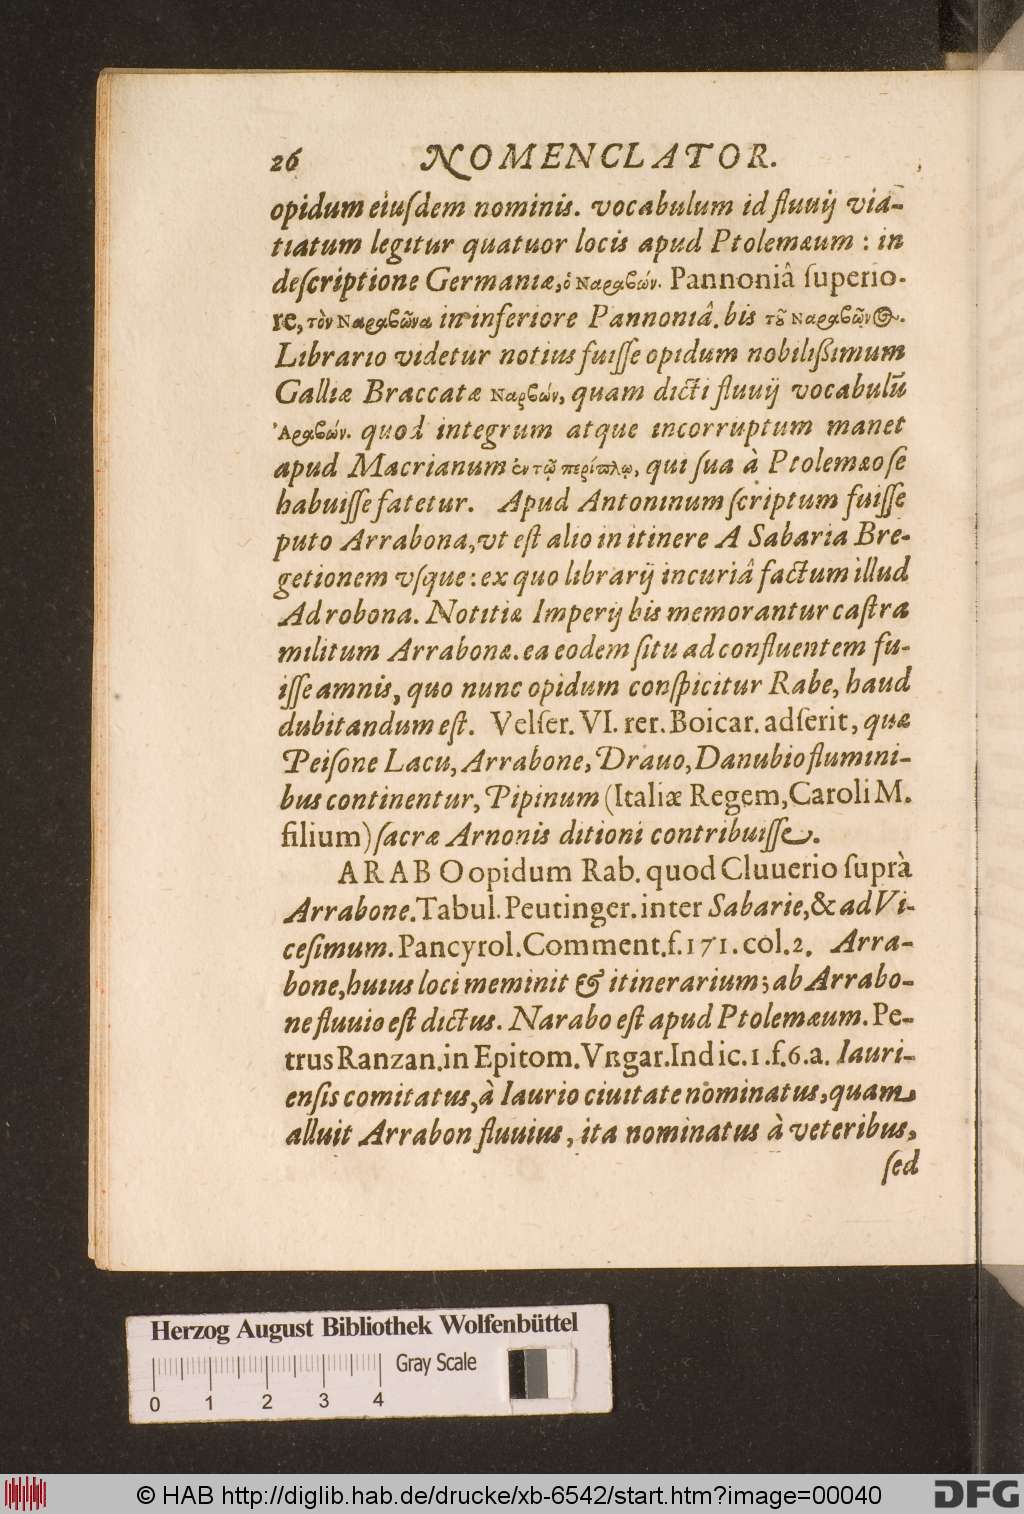 26 NOMENCLATOR.
opidum eiuſdem nominis. vocabulum id fluuij via-
tiatum legitur quatuor locis apud Ptolemæum : in
deſcriptione Germaniæ, ὁ Ναραβών. Pannoniâ ſuperio-
re, τὸν Ναραβῶνα in inferiore Pannoniâ. bis τοῦ Ναραβῶνος.
Librario videtur notius fuiſſe opidum nobiliſſimum
Galliæ Braccatæ Ναρβών, quam dicti fluuij vocabulū
Ἀραβών. quod integrum atque incorruptum manet
apud Macrianum ἐν τῷ περίπλῳ, qui ſua à Ptolemæo ſe
habuiſſe fatetur. Apud Antoninum ſcriptum fuiſſe
puto Arrabona, vt eſt alio in itinere A Sabaria Bre-
getionem vſque : ex quo librarij incuriâ factum illud
Adrobona. Notitiæ Imperij bis memorantur caſtra
militum Arrabonæ. ea eodem ſitu ad confluentem fu-
iſſe amnis, quo nunc opidum conſpicitur Rabe, haud
dubitandum eſt. Velſer. VI. rer. Boicar. adſerit, quæ
Peiſone Lacu, Arrabone, Drauo, Danubio flumini-
bus continentur, Pipinum (Italiæ Regem, Caroli M.
filium) ſacræ Arnonis ditioni contribuiſſe.
ARABO opidum Rab. quod Cluuerio ſuprà
Arrabone. Tabul. Peutinger. inter Sabarie, & ad Vi-
ceſimum. Pancyrol. Comment. f. 171. col. 2. Arra-
bone, huius loci meminit & itinerarium; ab Arrabo-
ne fluuio eſt dictus. Narabo eſt apud Ptolemæum. Pe-
trus Ranzan. in Epitom. Vngar. Indic. 1. f. 6. a. Iauri-
enſis comitatus, à Iaurio ciuitate nominatus, quam
alluit Arrabon fluuius, ita nominatus à veteribus,
ſed
Herzog August Bibliothek Wolfenbüttel
Gray Scale
0 1 2 3 4
© HAB http://diglib.hab.de/drucke/xb-6542/start.htm?image=00040
DFG